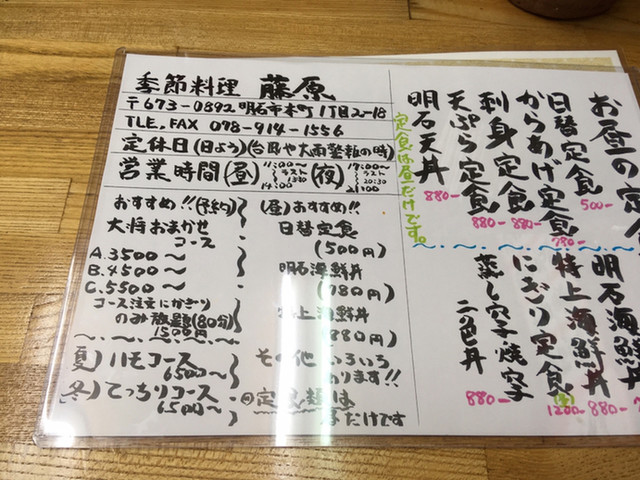 季節料理 藤原
〒673-0892 明石市本町1丁目2-18
TLE,FAX 078-914-1556
定休日(日よう)(台風や大雨警報の時)
営業時間(昼)11:00〜14:00 ラスト(夜)17:00〜21:00 ラスト20:30
おすすめ!!(予約)
大将おまかせ
コース
A.3500〜
B.4500〜
C.5500〜
コース注文にかぎり
のみ放題(80分)
1500円
夏)ハモコース
6500〜
冬)てっちりコース
6500〜
(昼)おすすめ!!
日替定食
(500円)
明石海鮮丼
(780円)
特上海鮮丼
880円)
その他 いろいろ
あります!!
定食類は
昼だけです
お昼の定食
日替定食
500-
からあげ定食
780-
刺身定食
880-
天ぷら定食
880-
明石天丼
880-
定食は昼だけです。
明石海鮮丼
特上海鮮丼
880-
にぎり定食
1200-
蒸し穴子焼穴子
二色丼
880-